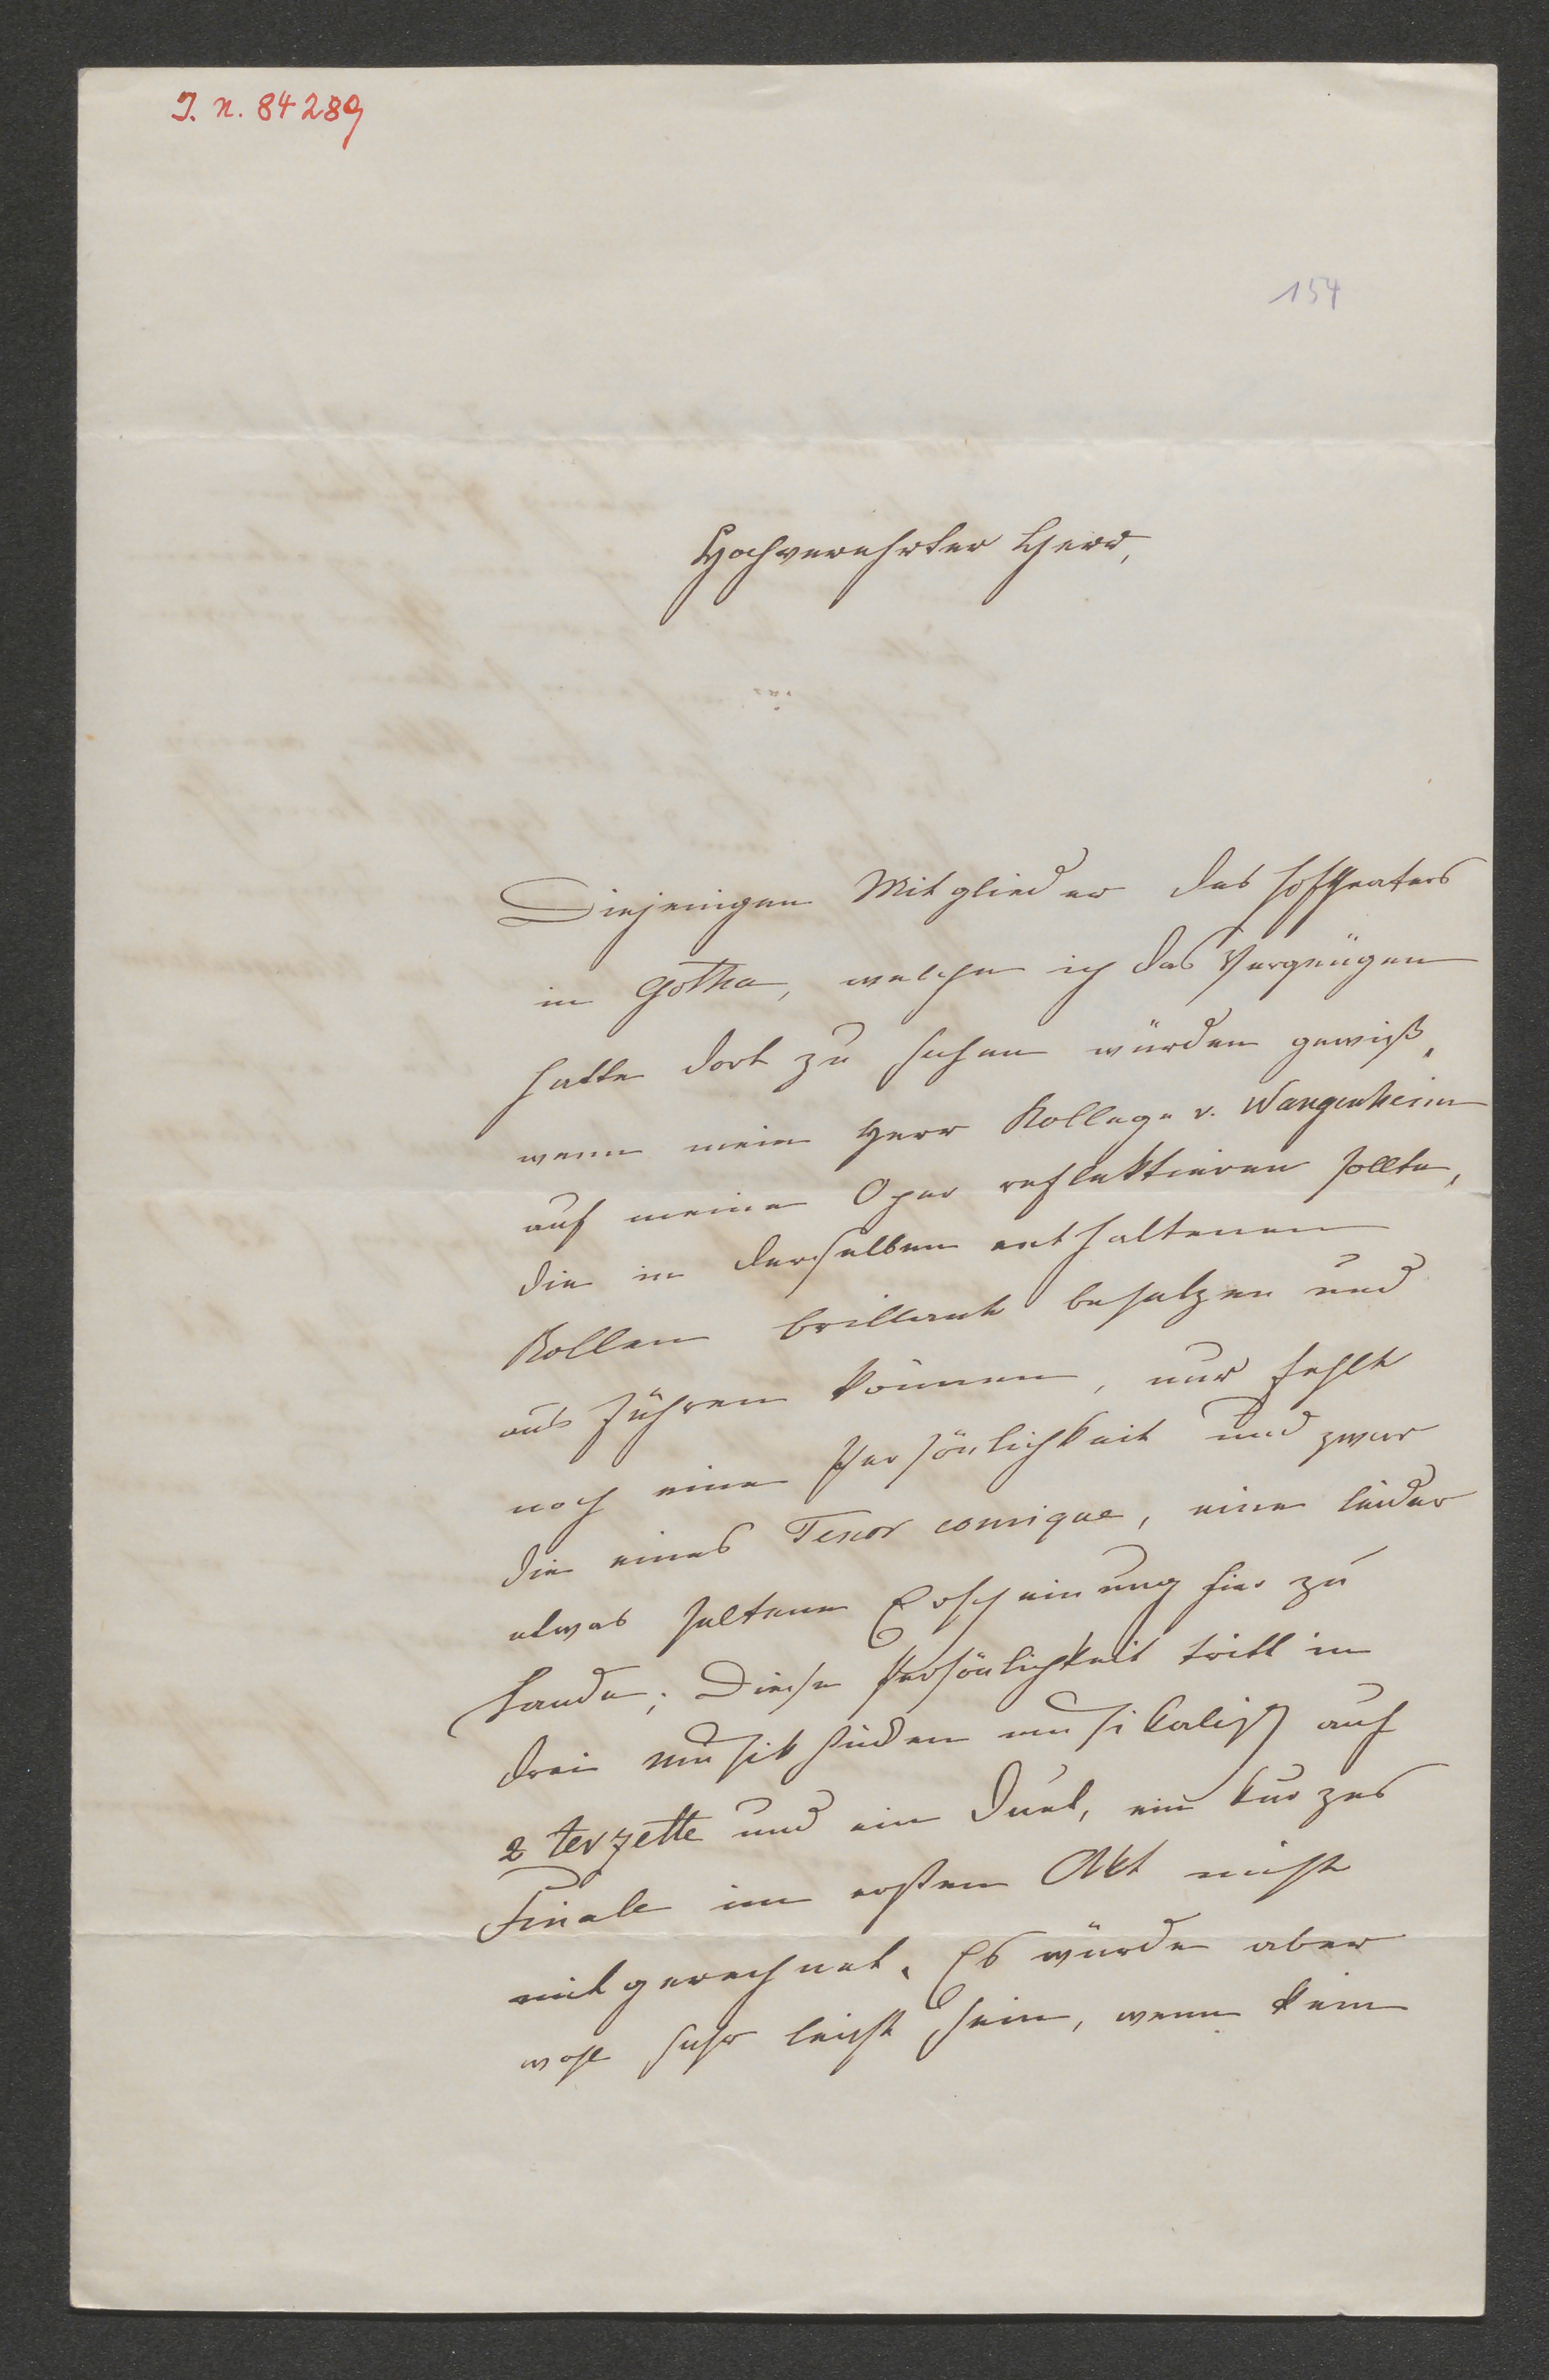 I. N. 84289
154
Hochverehrter Herr,
Diejenigen Mitglieder des Hoftheaters
in Gotha, welche ich das Vergnügen
hatte dort zu sehen würden gewiß,
wenn mein Herr Kollege v. Wangenheim
auf meine Oper reflektieren sollte,
die in derselben enthaltenen
Rollen brillant besetzen und
aus führen können, nur fehlt
noch eine Persönlichkeit und zwar
die eines Tenor comique, eine leider
etwas seltene Erscheinung hier zu
Lande; Diese Persönlichkeit tritt in
drei Musikstücken musikalisch auf
2 terzette und ein Duet, ein kurzes
Finale im ersten Akt nicht
mitgerechnet. Es würde aber
wohl sehr leicht sein, wenn kein